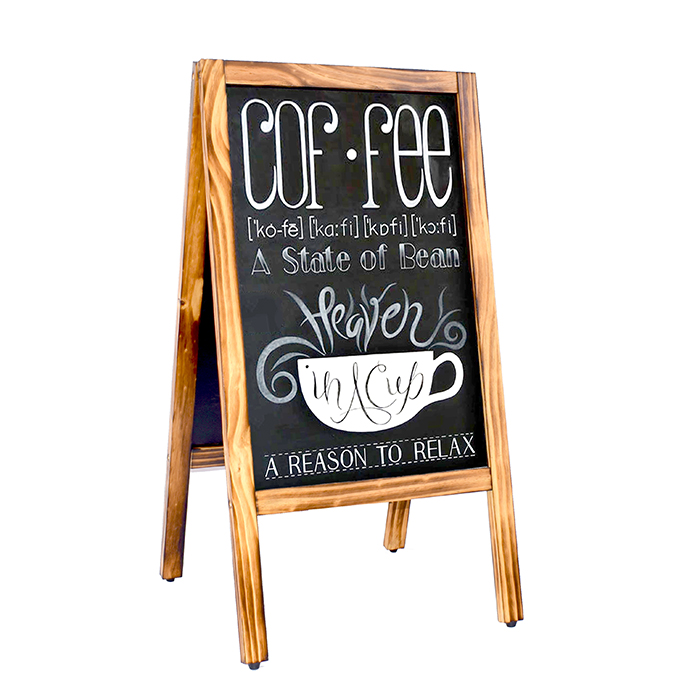 COF·FEE
['kó-fē] [ka:fi] [kɒfi] ['kɔ:fi]
A State of Bean
Heaven
in A Cup
A REASON TO RELAX